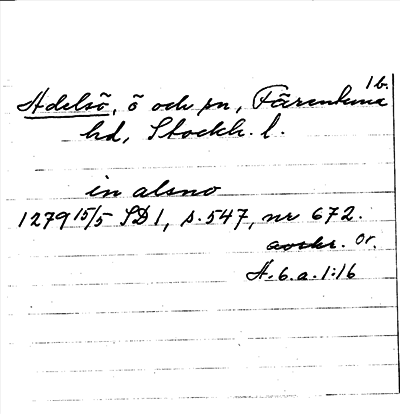 1b.
Adelsö, ö och sn, Färentuna
hd, Stockh. l.
in alsno
1279 15/5 SD 1, s. 547, nr 672.
avskr. Or.
H. 6. a. 1:16